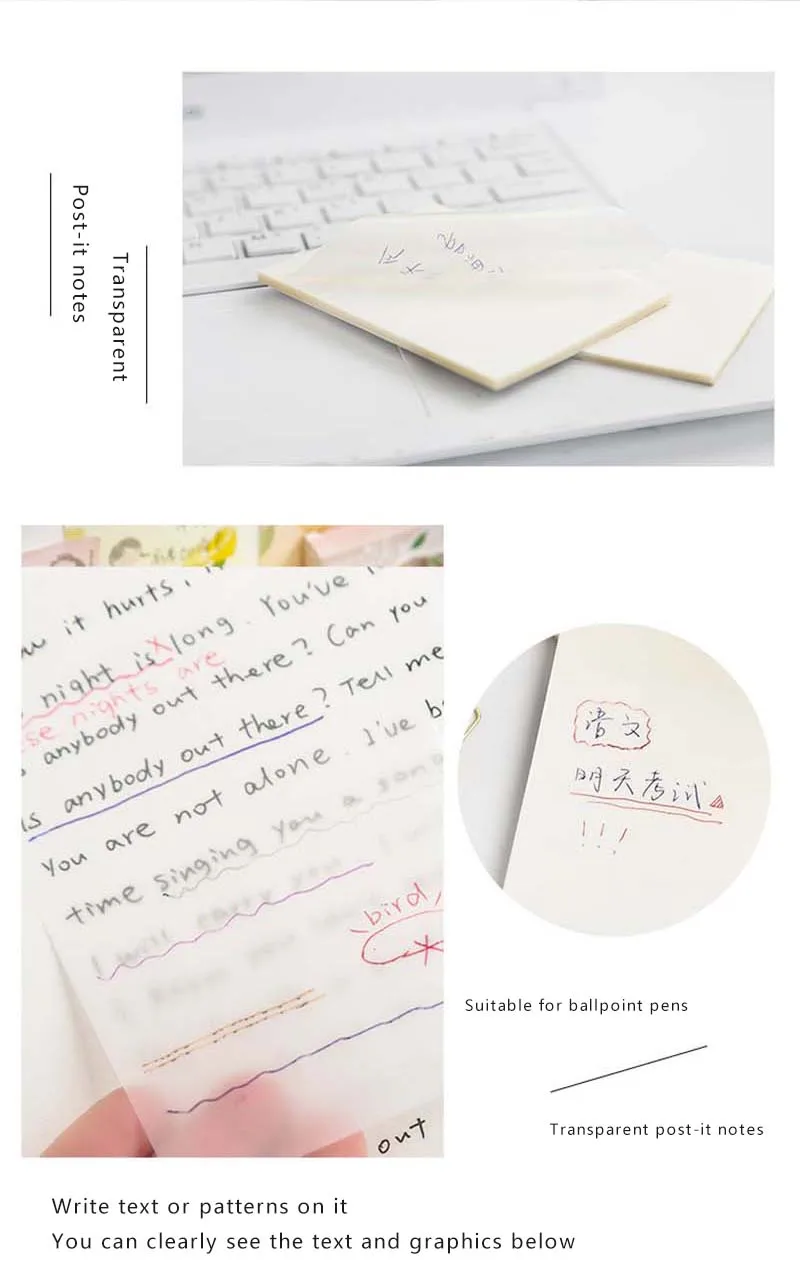 Transparent
Post-it notes
it hurts
night is x long. You've
se nights are
anybody out there? Can you
is anybody out there? Tell me
You are not alone. I've b
time singing you a song
I will carry you
bird
out
语文
明天考试
!!!
Suitable for ballpoint pens
Transparent post-it notes
Write text or patterns on it
You can clearly see the text and graphics below